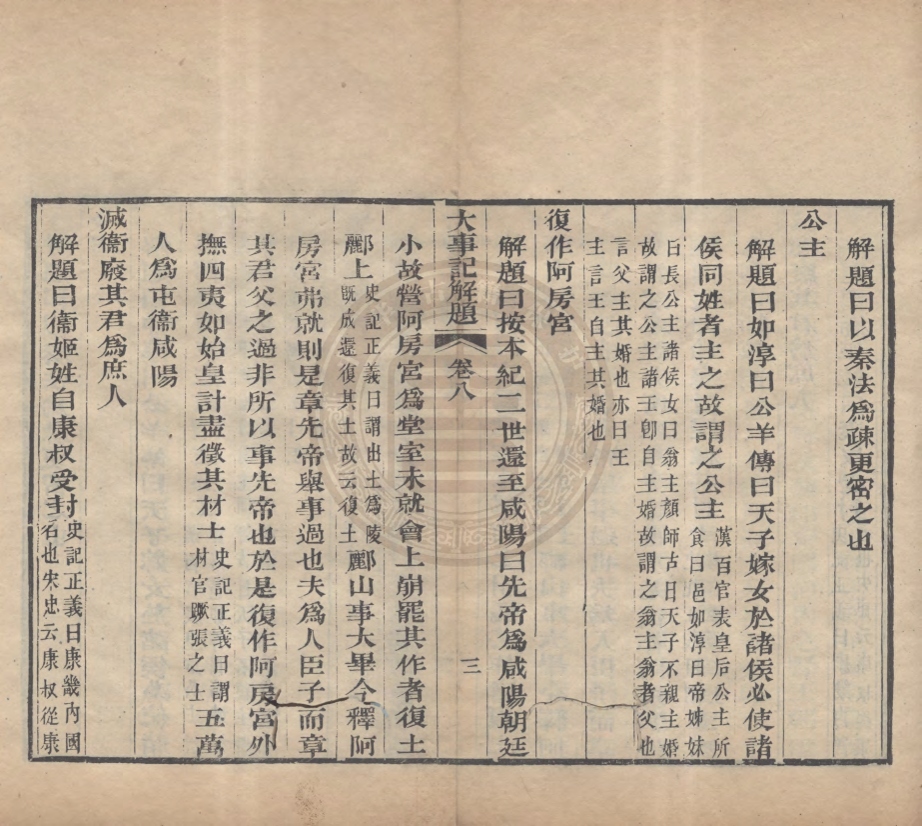 解題曰以秦法爲疎更密之也
公主
解題曰如淳曰公羊傳曰天子嫁女於諸侯必使諸
侯同姓者主之故謂之公主漢百官表皇后公主所
食曰邑如淳曰帝姊妹
曰長公主諸侯女曰翁主顏師古曰天子不親主婚
故謂之公主諸王卽自主婚故謂之翁主翁者父也
言父主其婚也亦曰王
主言王自主其婚也
復作阿房宫
解題曰按本紀二世還至咸陽曰先帝爲咸陽朝廷
大事記解題 卷八 三
小故營阿房宫爲堂室未就會上崩罷其作者復土
酈上史記正義曰謂出土爲陵
既成還復其土故云復土酈山事大畢今釋阿
房宫弗就則是章先帝舉事過也夫爲人臣子而章
其君父之過非所以事先帝也於是復作阿房宫外
撫四夷如始皇計盡徵其材士史記正義曰謂
材官蹶張之士五萬
人爲屯衞咸陽
滅衞廢其君爲庶人
解題曰衞姬姓自康叔受封史記正義曰康畿内國
名也宋忠云康叔從康